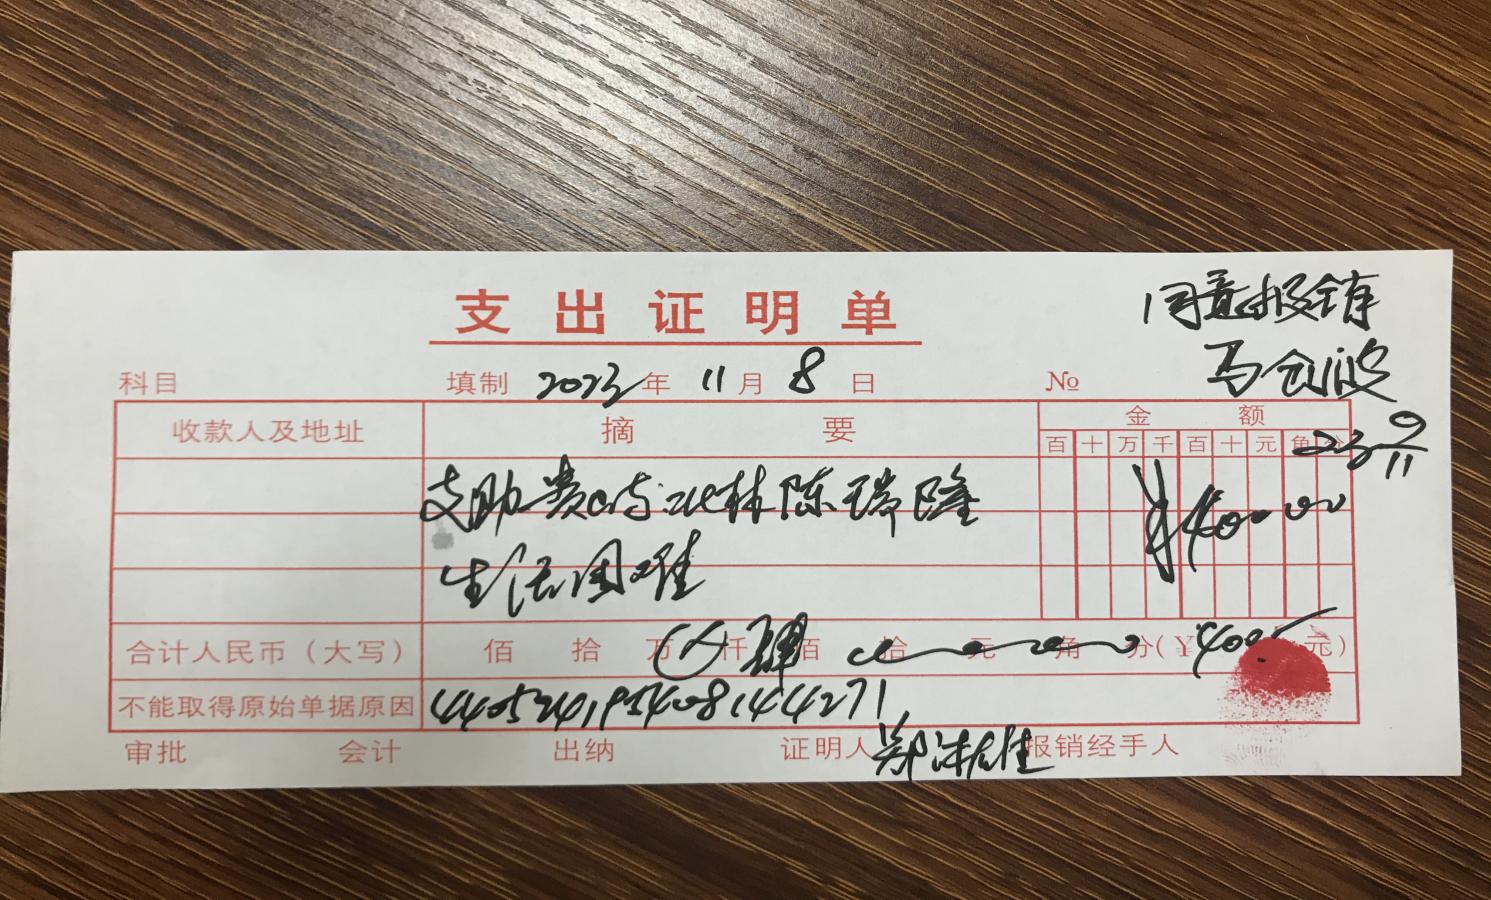 支出证明单
同意报销
马
科目 填制 2023年 11月 8日 №
23 9/11
收款人及地址 摘要 金额
百 十 万 千 百 十 元 角 分
支助费 陈瑞隆
¥400000
生活困难
合计人民币（大写） 佰 拾 万 仟 肆 佰 拾 元 角 分(¥4000 元)
不能取得原始单据原因
审批 会计 出纳 证明人 郑 雄 报销经手人